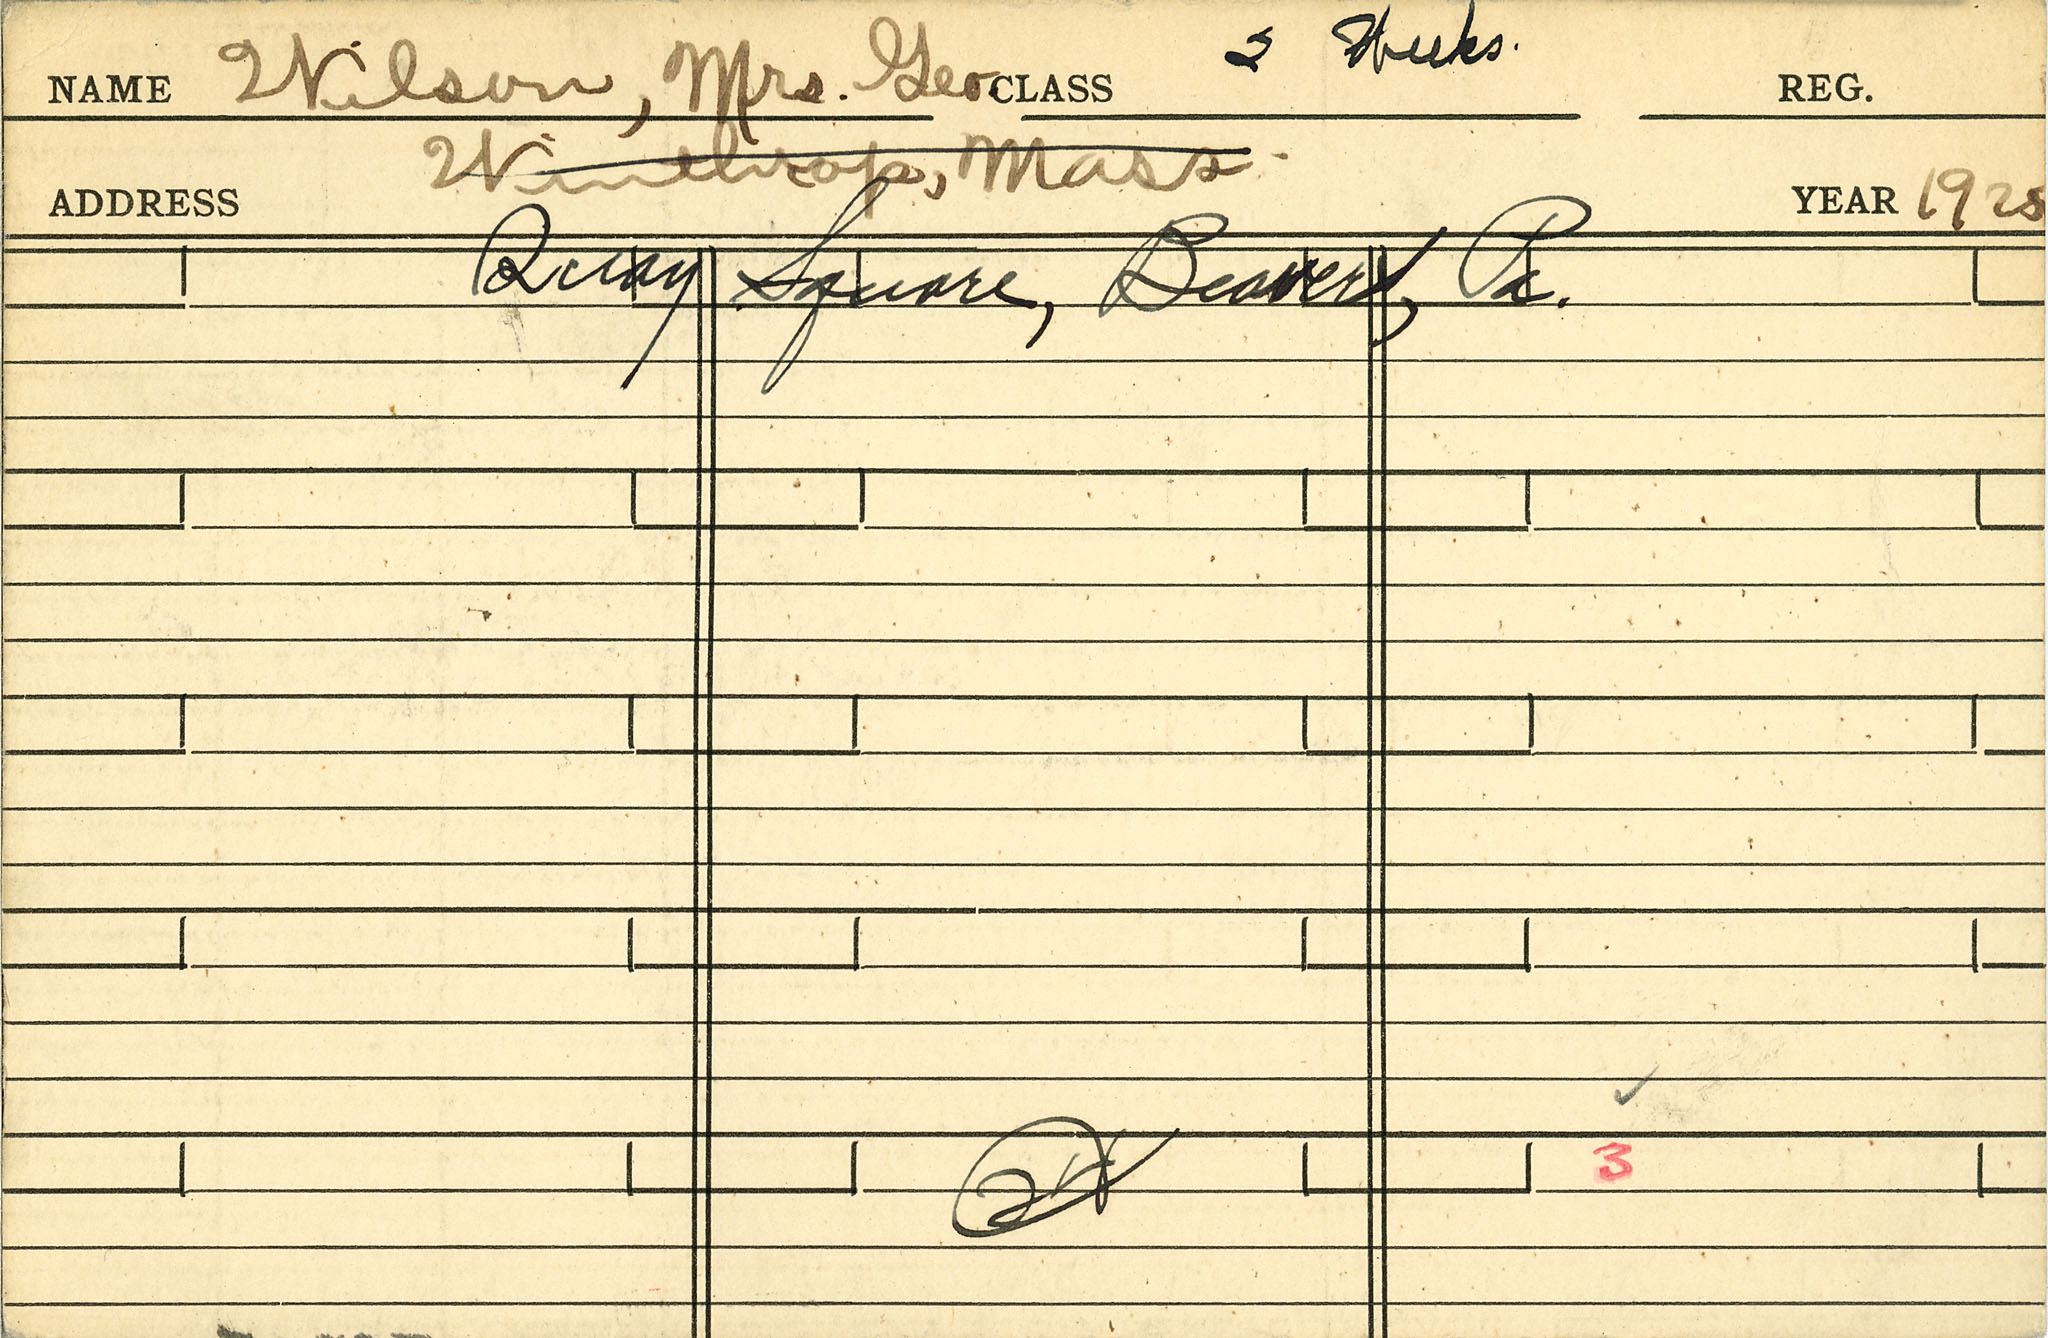 NAME Wilson, Mrs. Geo. CLASS 2 Weeks. REG.
Winthrop, Mass.
ADDRESS YEAR 1925
Quay Square, Beaver, Pa.
24
3